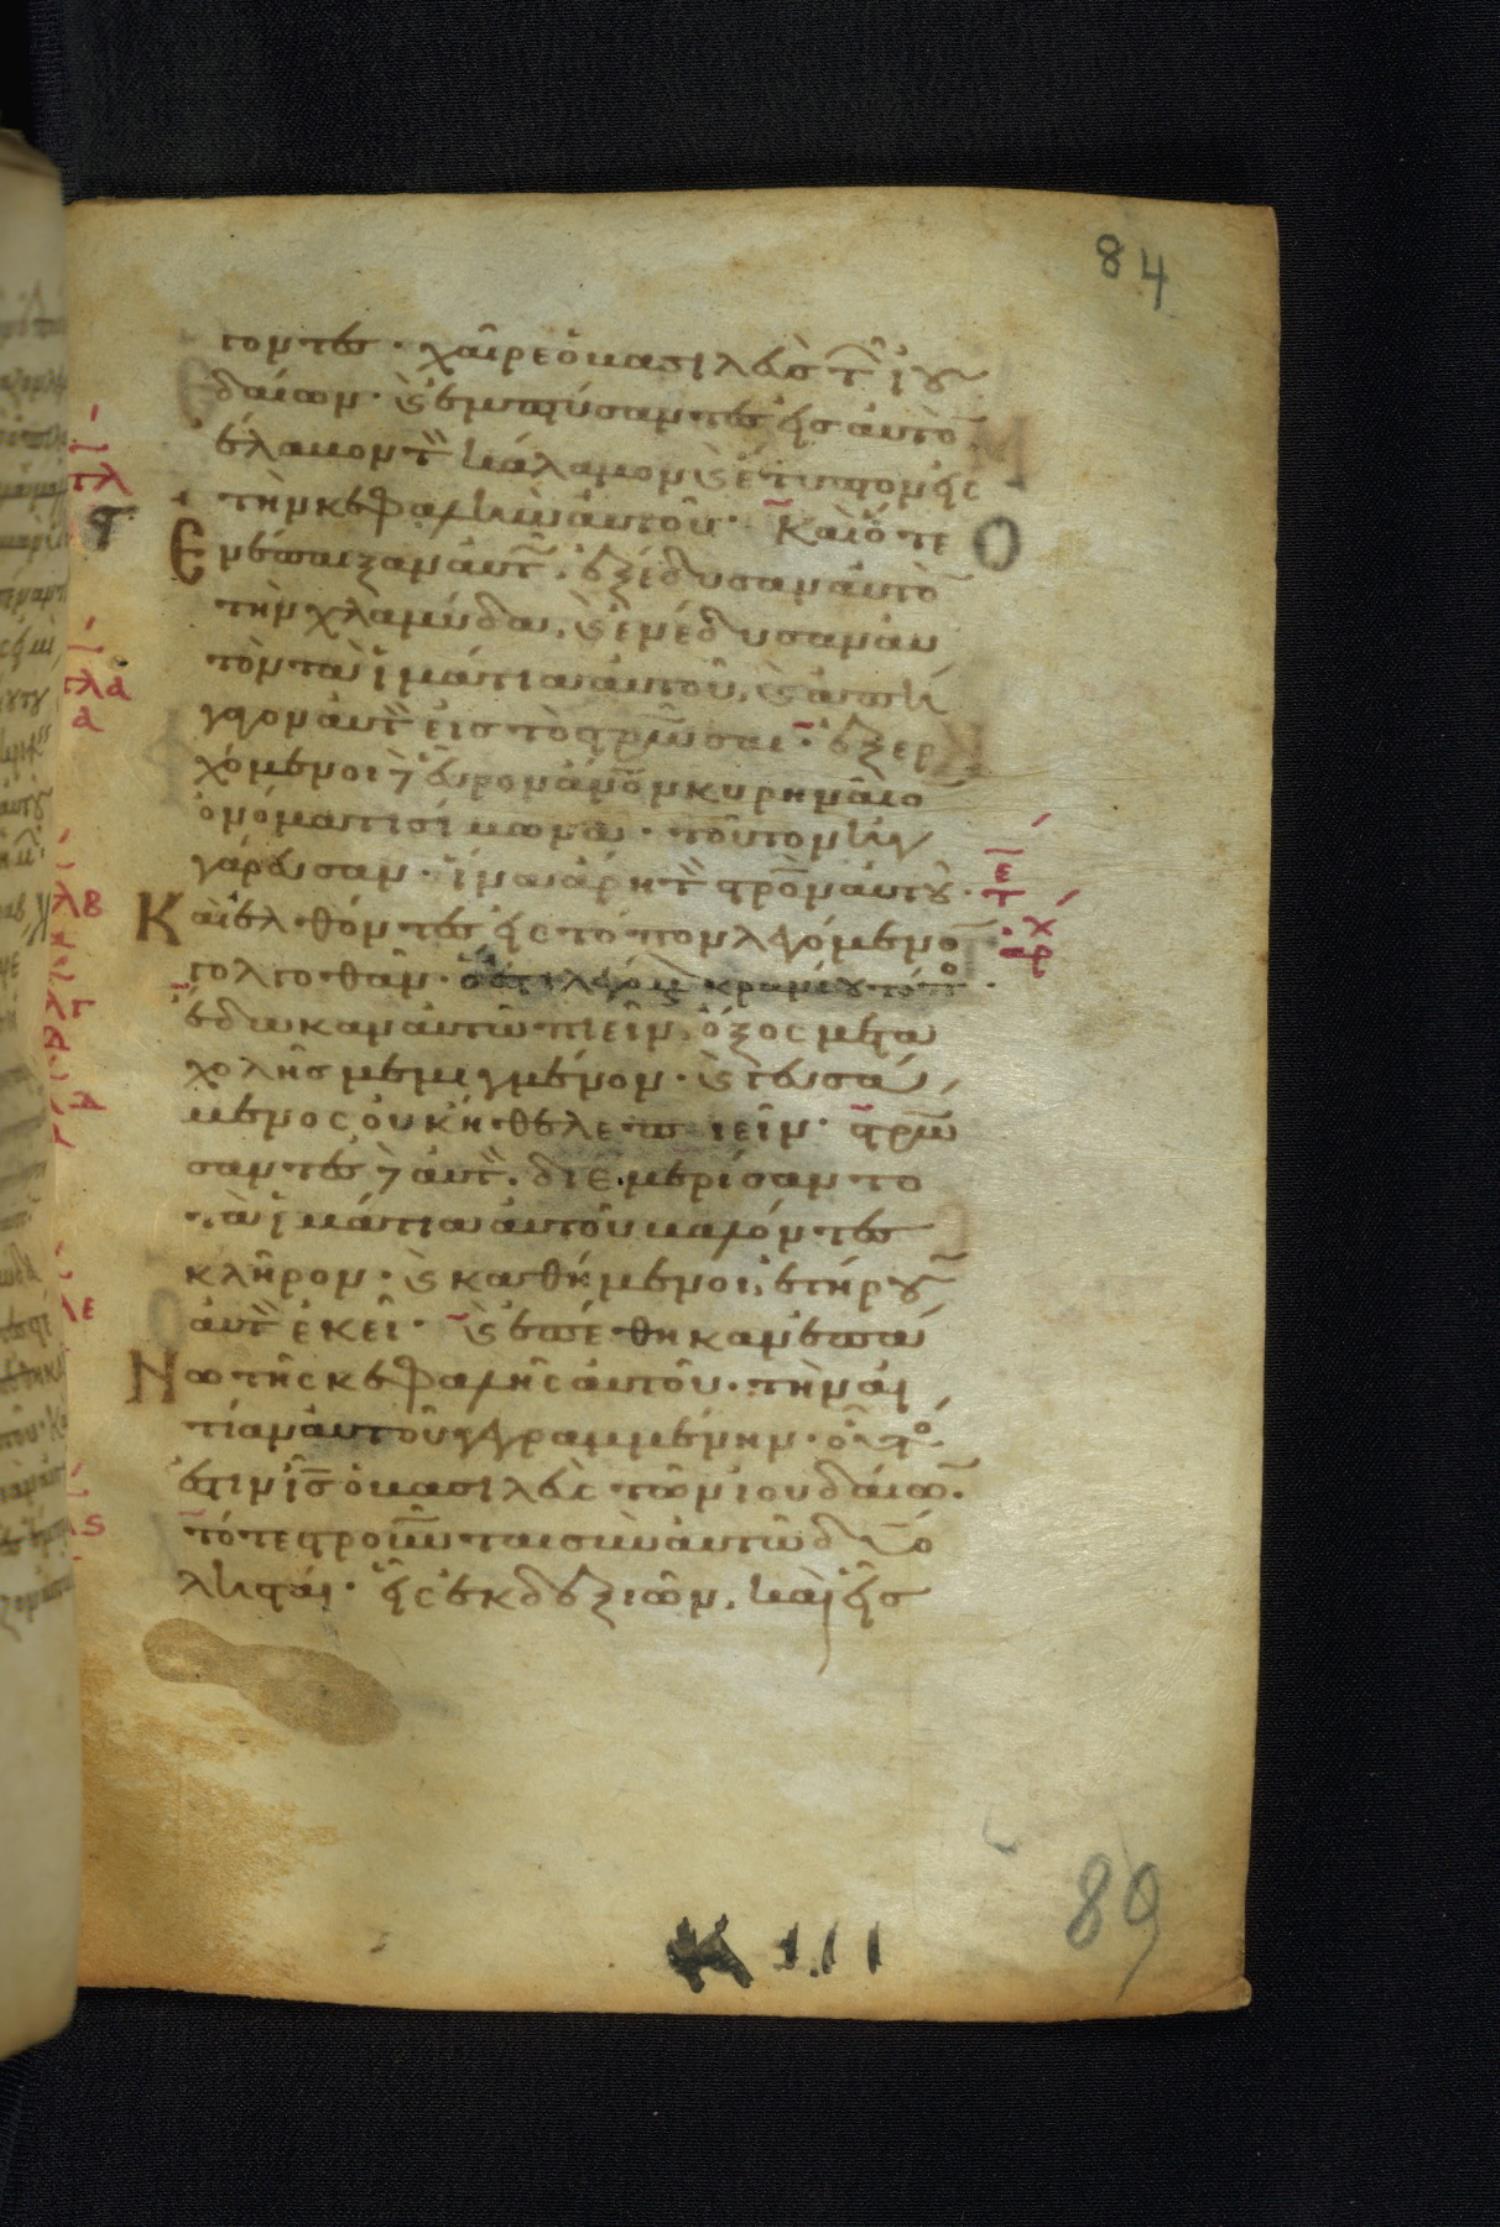 84
ζοντες · χαῖρε ὁ βασιλεὺς τῶν ἰου
δαίων · ϗ ἐμπτύσαντες εἰς αὐτὸ
ἔλαβον τὸν κάλαμον ϗ ἔτυπτον εἰς
τὴν κεφαλὴν αὐτοῦ · Καὶ ὅτε
ἐνέπαιξαν αὐτῷ, ἐξέδυσαν αὐτὸ
τὴν χλαμύδα, ϗ ἐνέδυσαν αὐ
τὸν τὰ ἱμάτια αὐτοῦ, ϗ ἀπή
γαγον αὐτὸν εἰς τὸ σταυρῶσαι · ἐξερ
χόμενοι δὲ εὗρον ἄνον κυρηναῖο
ὀνόματι σίμωνα · τοῦτον ἠγ
γάρευσαν · ἵνα ἄρῃ τὸν σταυρὸν αὐτοῦ ·
Καὶ ἐλθόντες εἰς τόπον λεγόμενο
γολγοθᾶν · ὅ ἐστι λεγόμενος κρανίου τόπος ·
ἔδωκαν αὐτῷ πιεῖν, ὄξος μετὰ
χολῆς μεμιγμένον · ϗ γευσά
μενος οὐκ ἤθελε πιεῖν · σταυρώ
σαντες δὲ αὐτὸν. διεμερίσαντο
τὰ ἱμάτια αὐτοῦ βαλόντες
κλῆρον · ϗ καθήμενοι, ἐτήρουν
αὐτὸν ἐκεῖ · ϗ ἐπέθηκαν ἐπά
νω τῆς κεφαλῆς αὐτοῦ · τὴν αἰ
τίαν αὐτοῦ γεγραμμένην · οὗτός
ἐστιν ἰς ὁ βασιλεὺς τῶν ἰουδαίω.
τότε σταυροῦνται σὺν αὐτῷ δύο
λῃσταί · εἷς ἐκ δεξιῶν, καὶ εἷς
K III
89